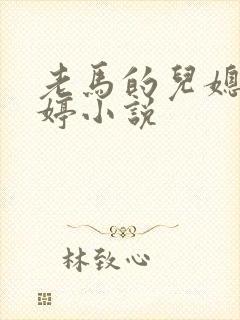 老馬的兒媳
婷小說
林致心